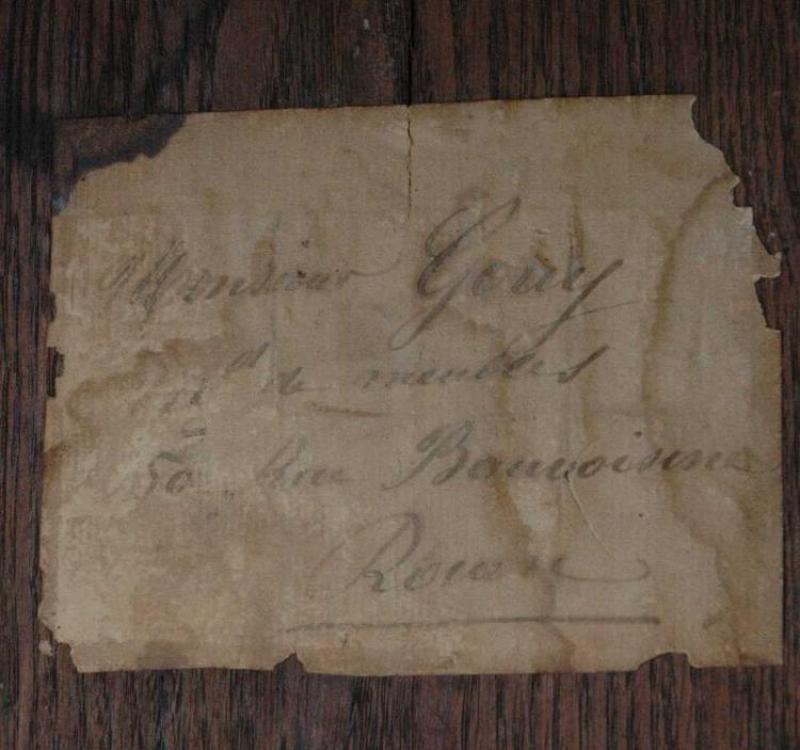 Monsieur Gouy
Md de meubles
50 Rue Bauvoisine
Rouen